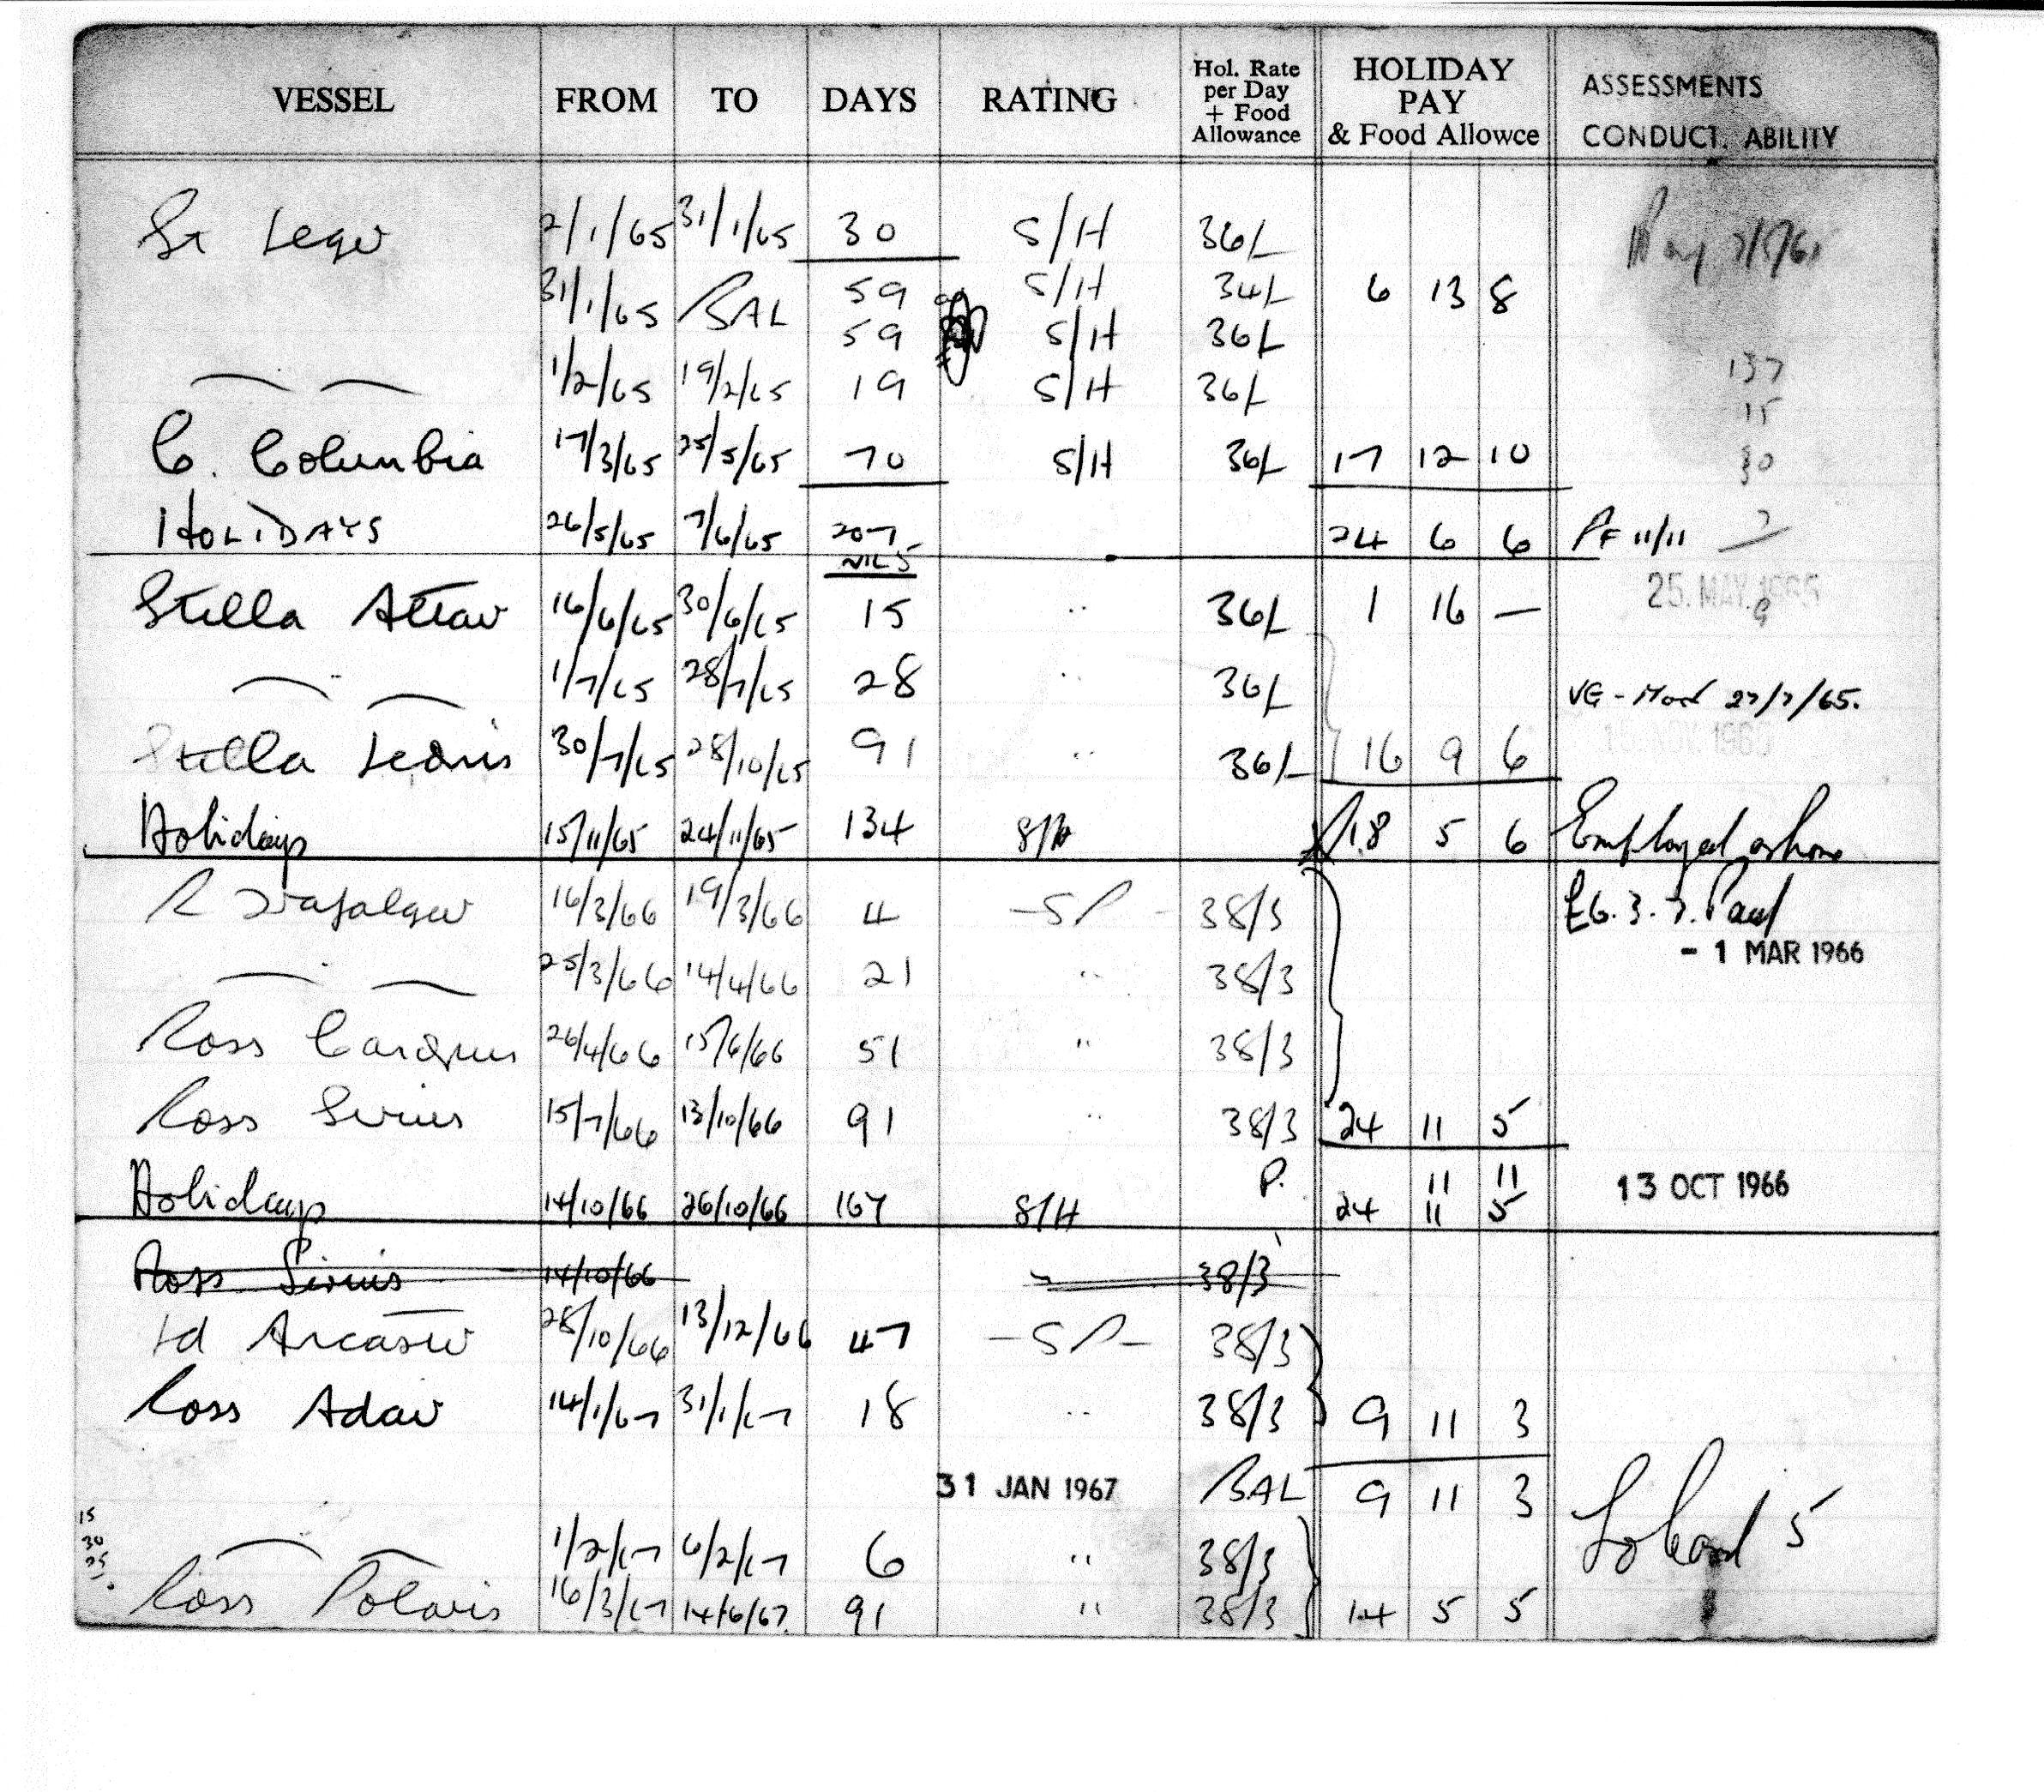 VESSEL FROM TO DAYS RATING Hol. Rate per Day + Food Allowance HOLIDAY PAY & Food Allowce ASSESSMENTS CONDUCT. ABILITY
St Leger 2/1/65 31/1/65 30 S/H 36/-
31/1/65 BAL 59 S/H 34/- 6 13 8
59 S/H 36/-
1/2/65 19/2/65 19 S/H 36/- 137
15
C. Columbia 17/3/65 25/5/65 70 S/H 36/- 17 12 10 30
HOLIDAYS 26/5/65 7/6/65 207 24 6 6 PF 11/11
NIL 5
25. MAY. 1965
Stella Altair 16/6/65 30/6/65 15 " 36/- 1 16 —
1/7/65 28/7/65 28 " 36/- VG - 27/7/65.
Stella Leonis 30/7/65 28/10/65 91 " 36/- 16 9 6
Holidays 15/11/65 24/11/65 134 S/H 18 5 6 Employed ashore
R Trafalgar 16/3/66 19/3/66 4 - S P - 38/3 £6. 3. 7. Paid
- 1 MAR 1966
25/3/66 14/4/66 21 " 38/3
Ross Canopus 26/4/66 15/6/66 51 " 38/3
Ross Sirius 15/7/66 13/10/66 91 " 38/3 24 11 5
P. 11 11
Holidays 14/10/66 26/10/66 167 S/H 24 11 5 13 OCT 1966
Ross Sirius 14/10/66 " 38/3
Ld Ancaster 28/10/66 13/12/66 47 - S P - 38/3
Ross Adair 14/1/67 31/1/67 18 " 38/3 9 11 3
31 JAN 1967 BAL 9 11 3
15
30
25
1/2/67 6/2/67 6 " 38/3
Ross Polaris 16/3/67 14/6/67. 91 " 38/3 14 5 5